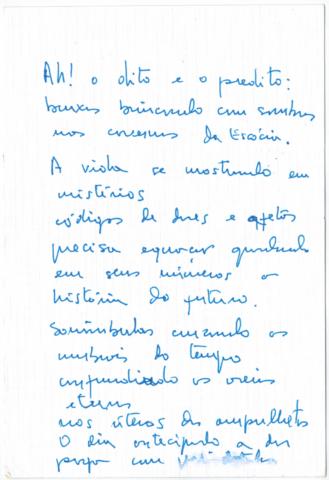 Ah! o dito e o predito:
bruxas brincando com sombras
nas cavernas da Escócia.
A vida se mostrando em
mistérios
códigos de dores e afetos
precisa equação guardando
em seus números a
história do futuro.
Sonâmbulos cruzando os
umbrais do tempo
confundindo os veios
eternos
nos úteros das ampulhetas
O dia antecipado a dor
com